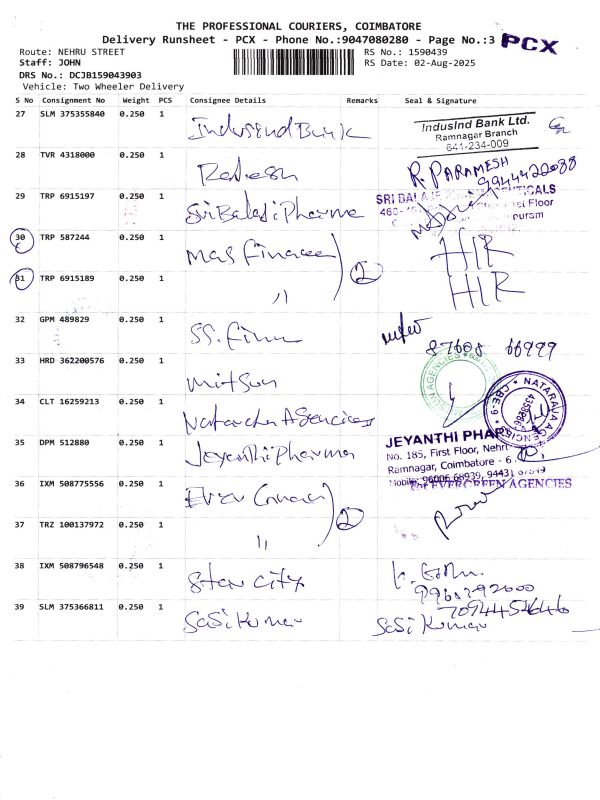 THE PROFESSIONAL COURIERS, COIMBATORE
Delivery Runsheet - PCX - Phone No.:9047080280 - Page No.:3 PCX
Route: NEHRU STREET RS No.: 1590439
Staff: JOHN RS Date: 02-Aug-2025
DRS No.: DCJB159043903
Vehicle: Two Wheeler Delivery
S No Consignment No Weight PCS Consignee Details Remarks Seal & Signature
27 SLM 375355840 0.250 1 IndusInd Bank
IndusInd Bank Ltd.
Ramnagar Branch
641-234-009
28 TVR 4318000 0.250 1 R. PARAMESH
29 TRP 6915197 0.250 1 Sri Balaji Pharma
SRI BALAJI
Floor
puram
30 TRP 587244 0.250 1 Mas Finance 2 HIR
31 TRP 6915189 0.250 1 " HIR
32 GPM 489829 0.250 1 SS. Finn
87608 66999
33 HRD 362200576 0.250 1 Mitsun
34 CLT 16259213 0.250 1 Nataraja Agencies
NATARAJA AGENCIES CBE-9
35 DPM 512880 0.250 1 Jeyanthi Pharma
JEYANTHI PHAR
No. 185, First Floor, Nehru
Ramnagar, Coimbatore - 6
Mobile: 96006 68939, 94431 67849
36 IXM 508775556 0.250 1 2
For EVERGREEN AGENCIES
37 TRZ 100137972 0.250 1 "
38 IXM 508796548 0.250 1 Star City
39 SLM 375366811 0.250 1 SaSi Kumar SaSi Kumar